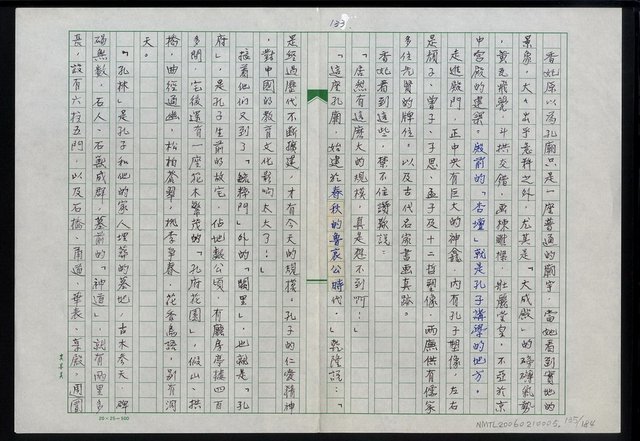 133
香妃原以為孔廟只是一座普通的廟宇，當她看到實地的
景象，大大出乎意料之外。尤其是「大成殿」的磅礡氣勢
，黃瓦飛甍，斗拱交錯，畫棟雕樑，壯麗堂皇，不亞於京
中宮殿的建築。殿前的「杏壇」就是孔子講學的地方。
走進殿門，正中央有巨大的神龕，內有孔子塑像，左右
是顏子、曾子、子思、孟子及十二哲塑像，兩廡供有儒家
多位先賢的牌位。以及古代名家書畫真跡。
香妃看到這些，禁不住讚歎說：
「居然有這麼大的規模，真是想不到啊！」
「這座孔廟，始建於春秋的魯哀公時代。」乾隆說：「
是經過歷代不斷擴建，才有今天的規模。孔子的仁愛精神
，對中國的教育文化影响太大了！」
接着他們又到了「毓粹門」外的「闕里」，也就是「孔
府」，是孔子生前的故宅，佔地數公頃，有廳房亭樓四百
多間，它後還有一座花木繁茂的「孔府花園」，假山、拱
橋，曲徑通幽，松柏蒼翠，桃李爭春，花香鳥語，別有洞
天。
「孔林」是孔子和他的家人埋葬的墓地，古木參天，碑
碣無數，石人、石獸成群，墓前的「神道」，就有兩里多
長，設有六柱五門，以及石橋、甬道、華表、享殿，周圍
20×25=500
NMTL20060210005
135/184